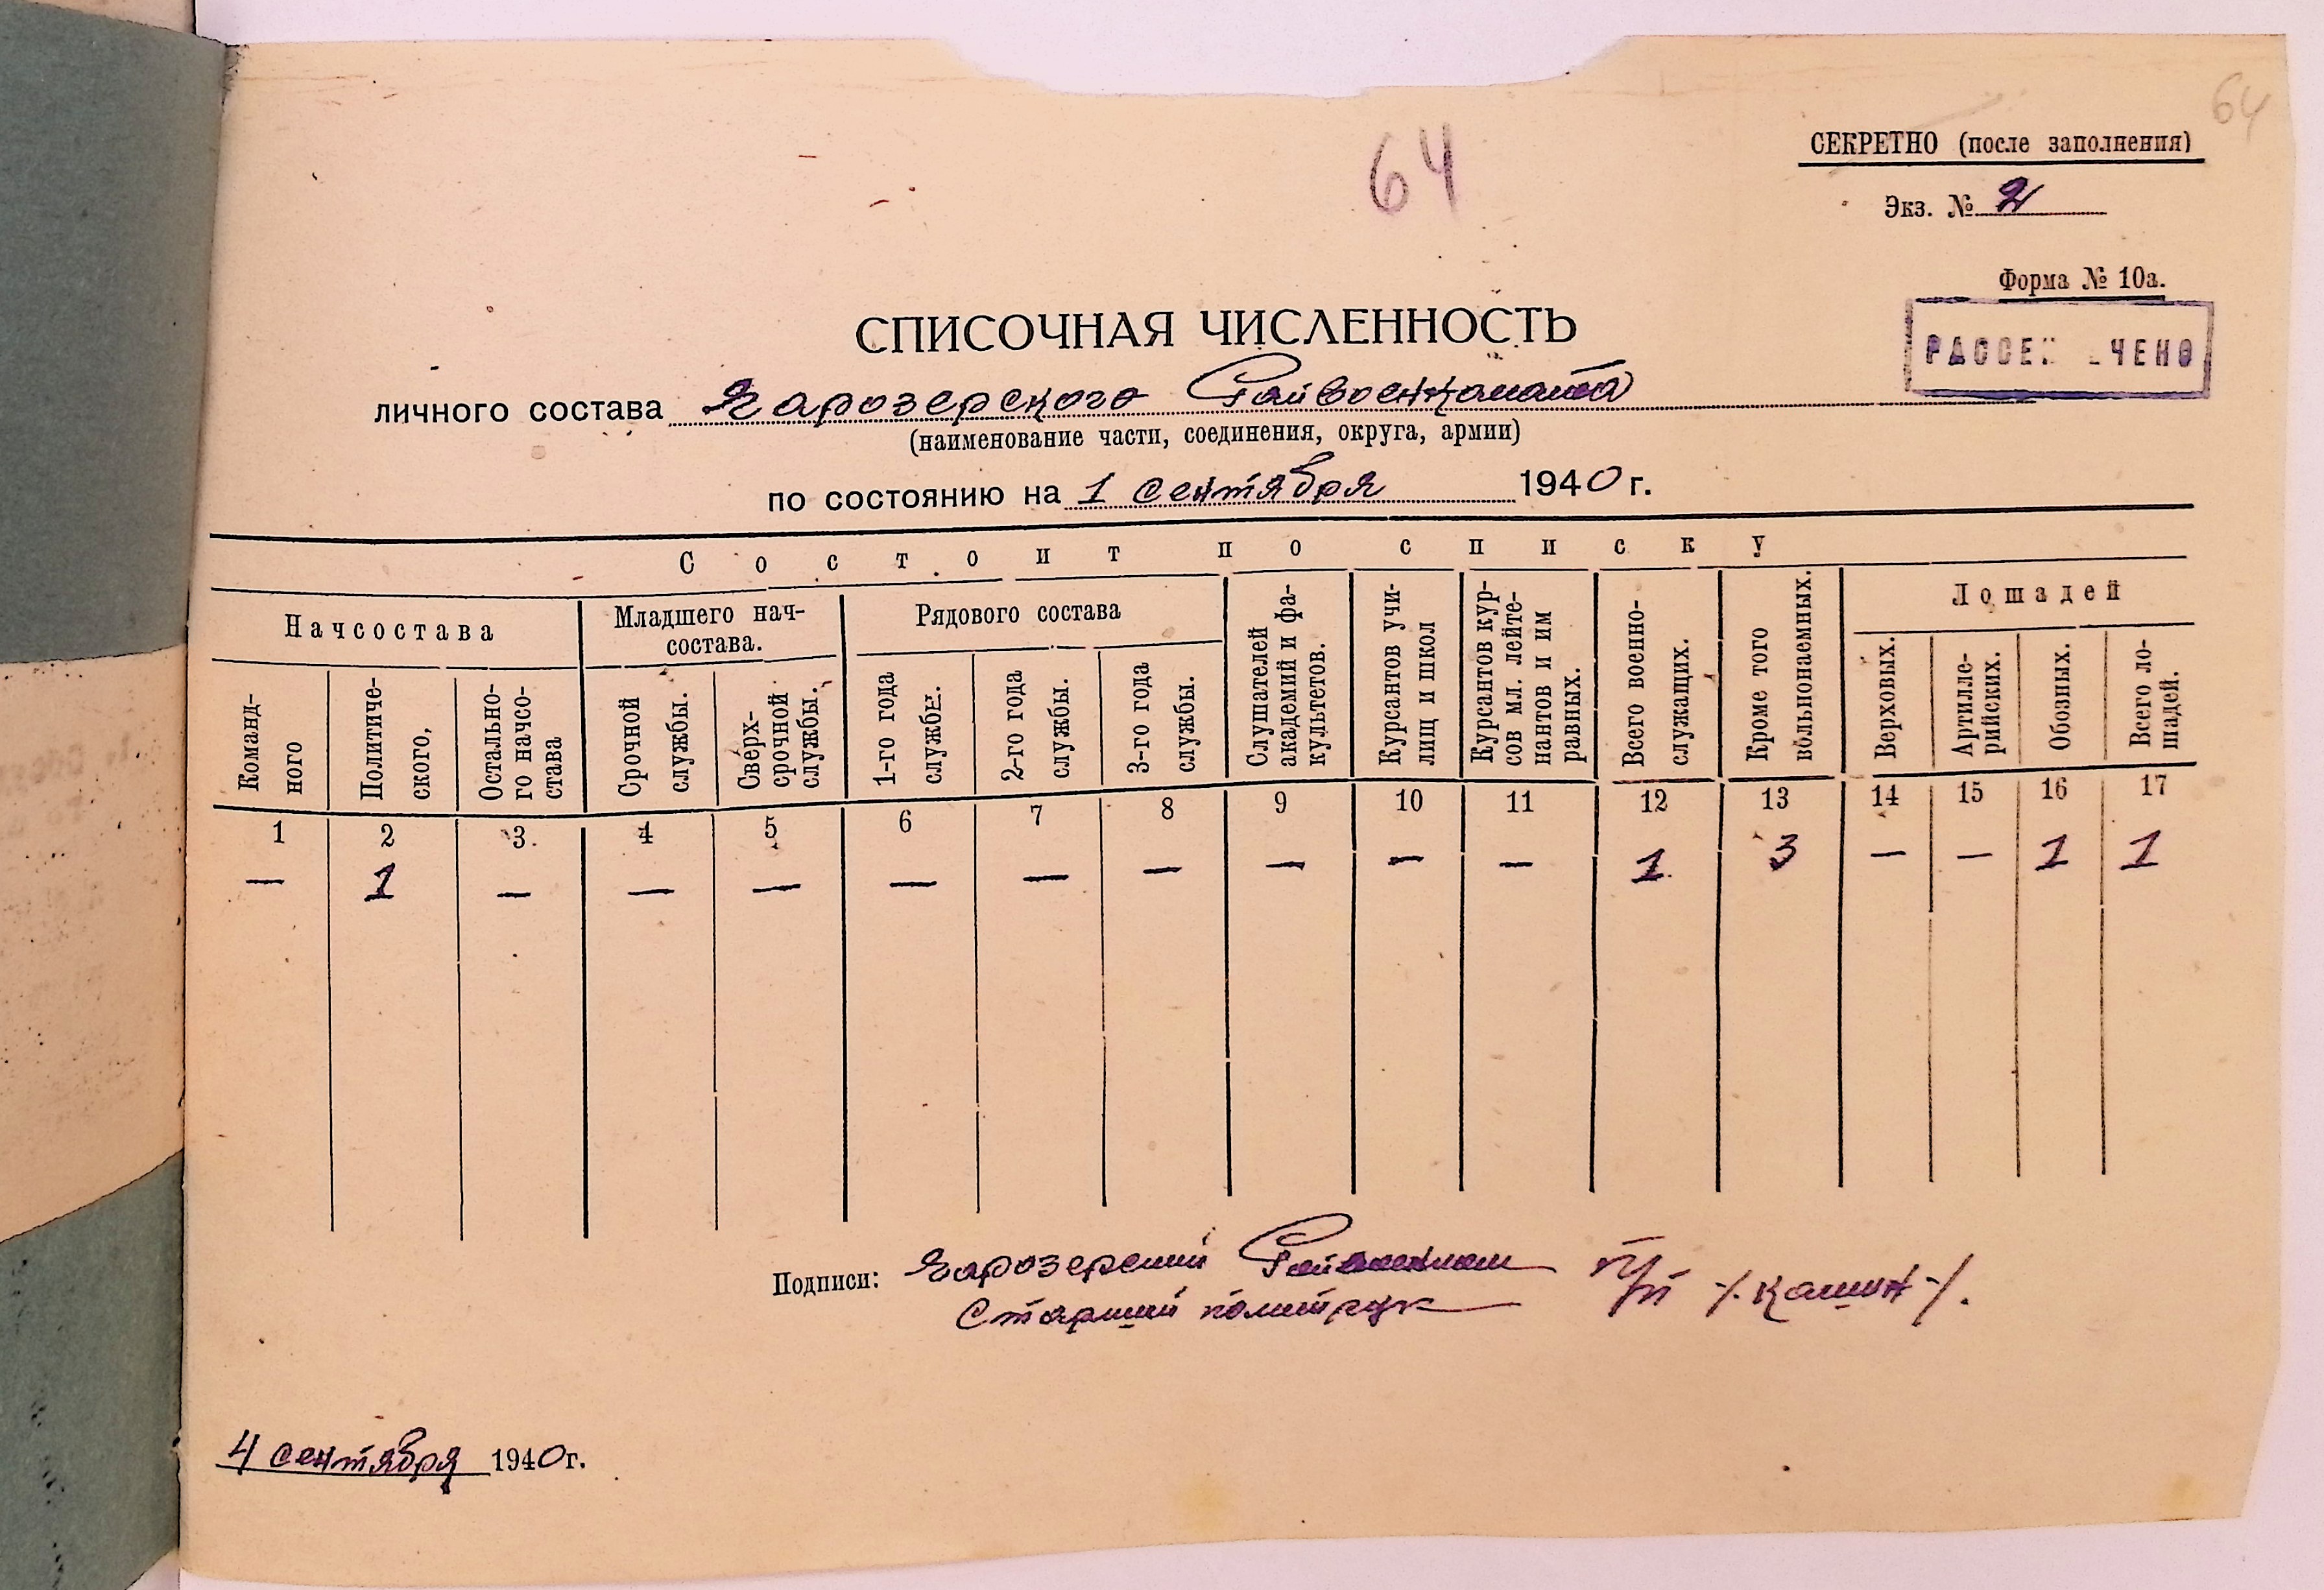 64
64
СЕКРЕТНО (после заполнения)
Экз. № 2
Форма № 10а.
РАССЕК ЧЕНО
СПИСОЧНАЯ ЧИСЛЕННОСТЬ
личного состава Чарозерского Райвоенкомата
(наименование части, соединения, округа, армии)
по состоянию на 1 сентября 1940 г.
Состоит по списку
Начсостава
Младшего нач-
состава.
Рядового состава
Лошадей
Команд-
ного
Политиче-
ского,
Остально-
го начсо-
става
Срочной
службы.
Сверх-
срочной
службы.
1-го года
службы.
2-го года
службы.
3-го года
службы.
Слушателей
академий и фа-
культетов.
Курсантов учи-
лищ и школ
Курсантов кур-
сов мл. лейте-
нантов и им
равных.
Всего военно-
служащих.
Кроме того
вольнонаемных.
Верховых.
Артилле-
рийских.
Обозных.
Всего ло-
шадей.
1 2 3. 4 5 6 7 8 9 10 11 12 13 14 15 16 17
— 1 — — — — — — — — — 1 3 — — 1 1
Подписи: Чарозерский Райвоенком п/п /Кашин/.
Старший политрук
4 сентября 1940 г.